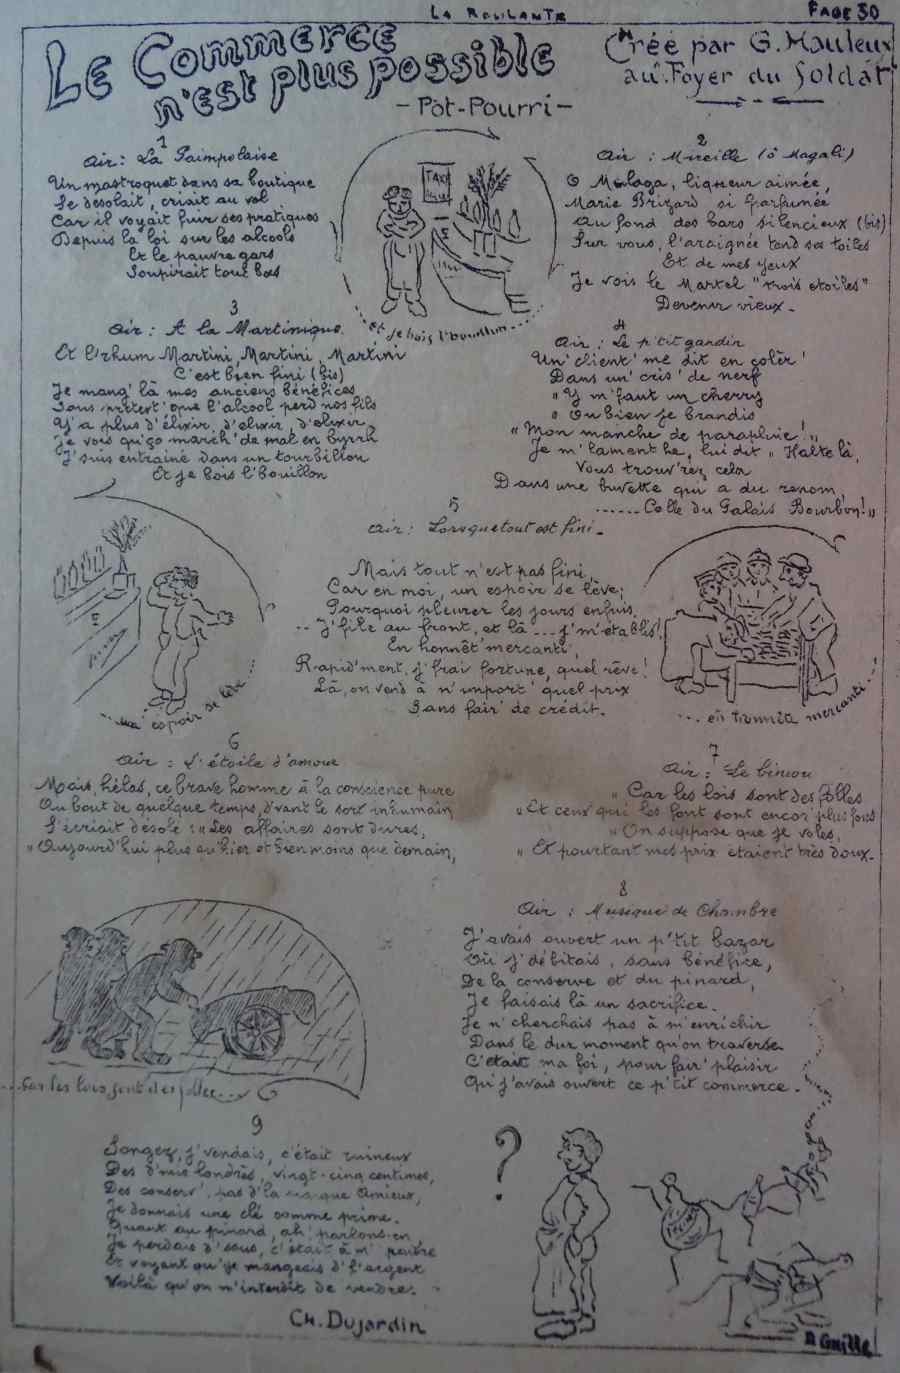 LA ROULANTE
PAGE 30
LE Commerce
n'est plus possible
- Pot-Pourri -
Créé par G. Mauleux
au Foyer du Soldat
1
Air : La Paimpolaise
Un mastroquet dans sa boutique
Se désolait, criait au vol
Car il voyait fuir ses pratiques
Depuis la loi sur les alcools
Et le pauvre gars
Soupirait tout bas
TAXE
et je bois l'bouillon
2
Air : Mireille (ô Magali)
O Malaga, liqueur aimée,
Marie Brizard si parfumée
Au fond des bars silencieux (bis)
Sur vous, l'araignée tend ses toiles
Et de mes yeux
Je vois le Martel "trois étoiles"
Devenir vieux.
3
Air : A la Martinique
Et l'rhum Martini, Martini, Martini
C'est bien fini (bis)
Je mang' là mes anciens bénéfices
Sous prétext' que l'alcool perd nos fils
Y'a plus d'élixir, d'elixir, d'elixir
Je vois qu'ço march' de mal en byrrh
J'suis entraîné dans un tourbillon
Et je bois l'bouillon
4
Air : Le p'tit gardin
Un' client' me dit en colèr'
Dans un' cris' de nerf
" Y m'faut un cherry
" Ou bien je brandis
" Mon manche de parapluie ! "
Je m'lamente, lui dit " Halte là,
Vous trouv'rez cela
Dans une buvette qui a du renom,
...... Celle du Palais Bourbon ! "
5
Air : Lorsque tout est fini.
Mais tout n'est pas fini,
Car en moi, un espoir se lève ;
Pourquoi pleurer les jours enfuis
.. J'file au front, et là ... j'm'établis !
En honnêt' mercanti,
Rapid'ment, j'frai fortune, quel rêve !
Là, on vend à n'import' quel prix
Sans fair' de crédit.
... un espoir se lève ...
... en honnête mercanti ...
6
Air : L'étoile d'amour
Mais, hélas, ce brave homme à la conscience pure
Au bout de quelque temps, d'vant le sort inhumain
S'écriait désolé : " Les affaires sont dures,
" Aujourd'hui plus qu'hier et bien moins que demain,
7
Air : Le biniou
" Car les lois sont des folles
" Et ceux qui les font sont encor plus fous
" On suppose que je voles,
" Et pourtant mes prix étaient très doux.
8
Air : Musique de Chambre
J'avais ouvert un p'tit bazar
Où j'débitais, sans bénéfice,
De la conserve et du pinard,
Je faisais là un sacrifice.
Je n'cherchais pas à m'enrichir
Dans le dur moment qu'on traverse
C'était ma foi, pour fair' plaisir
Qu'j'avais ouvert ce p'tit commerce.
... Car les lois sont des folles ...
9
Songez, j'vendais, c'était ruineux
Des d'mis londrès, vingt-cinq centimes,
Des conserv', pas d'la marque Amieux,
Je donnais une clé comme prime.
Quant au pinard, ah ! parlons-en,
Je perdais d'sous, c'était à m'
Et voyant qu'je mangeais d'l'argent
Voilà qu'on m'interdit de vendre.
?
CH. Dujardin